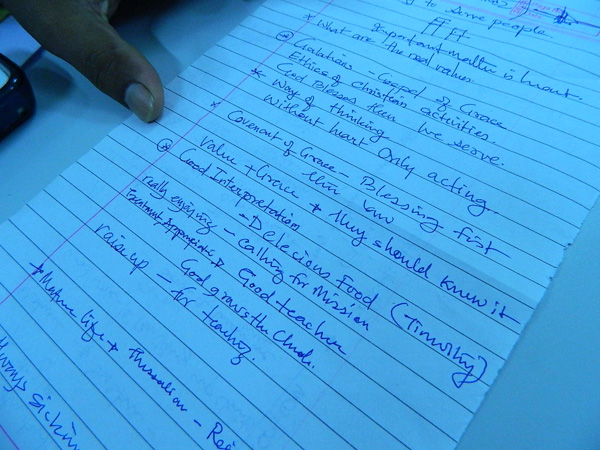 to serve people.
Important matter is heart.
* What are the real values
Galatians - Gospel of Grace
Ethics of christian activities.
* God Blesses then we serve.
Way of thinking
Without heart only acting.
* Covenant of Grace - Blessing first
then law
Value + Grace + they should know it
Good Interpretation
- Delecious Food (Timothy)
really enjoying - calling for Mission
Good teacher
God grows the Church.
raise up - for teaching.
* Mature life +
Always